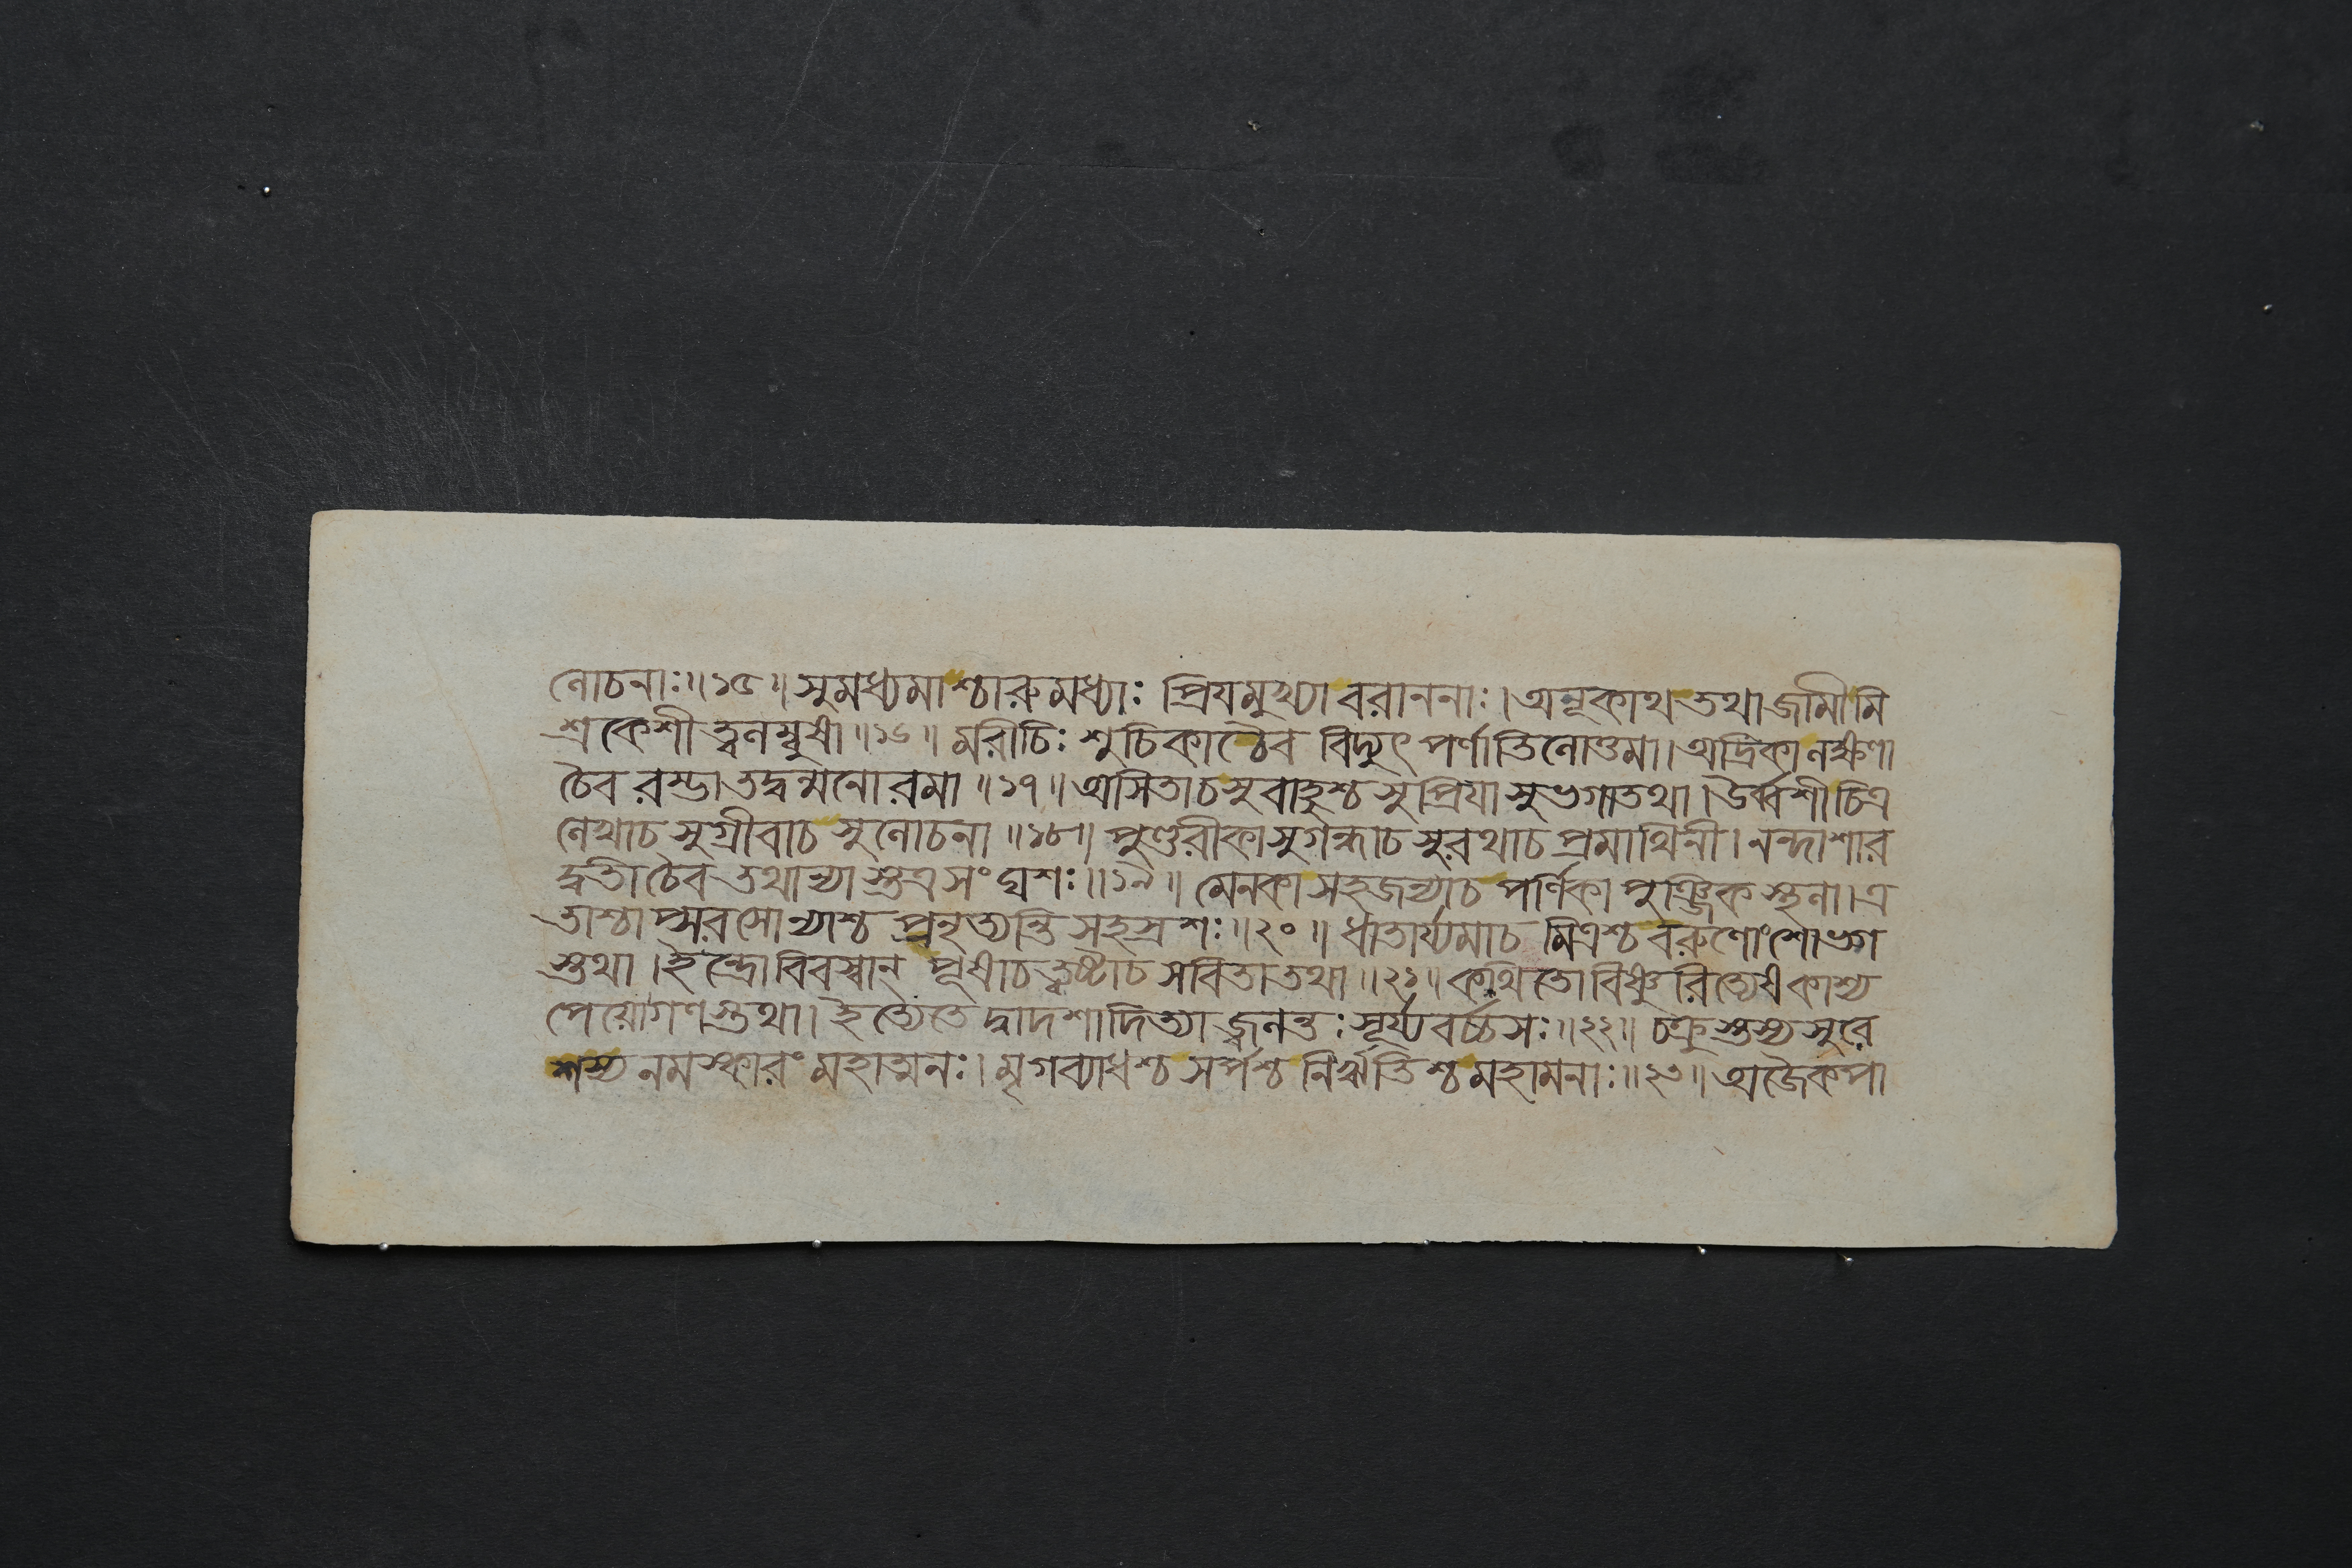 লোচনাঃ॥১৫॥সুমধ্যমাশ্চারুমধ্যাঃ প্রিযমুখ্যা বরাননাঃ।অনূকাথ তথা জামী মি
শ্রকেশী ত্বলম্বুষা॥১৬॥ মরীচিঃ শুচিকা চৈব বিদ্যুৎপর্ণা তিলোত্তমা।অদ্রিকা লক্ষণা
চৈব রম্ভা তদ্বন্মনোরমা॥১৭॥অসিতা চ সুবাহুশ্চ সুপ্রিযা সুভগা তথা।উর্ব্বশী চিত্র
লেখা চ সুগ্রীবা চ সুলোচনা॥১৮॥ পুণ্ডরীকা সুগন্ধা চ সুরথা চ প্রমাথিনী।নন্দা শার
দ্বতী চৈব তথান্যাস্তত্র সংঘশঃ॥১৯॥ মেনকা সহজন্যা চ পর্ণিকা পুঞ্জিকস্থলা।এ
তাশ্চাপ্সরসোন্যাশ্চ প্রনৃত্যন্তি সহস্রশঃ॥২০॥ ধাতার্য্যমা চ মিত্রশ্চ বরুণোংশো ভগ
স্তথা।ইন্দ্রো বিবস্বান্ পূষা চ ত্বষ্টা চ সবিতা তথা॥২১॥কথিতো বিষ্ণুরিত্যেষ কাশ্য
পেয়ো গণস্তথা।ইত্যেতে দ্বাদশাদিত্যা জ্বলন্তঃ সূর্য্যবর্চ্চসঃ॥২২॥ চক্রুস্তস্য সুরে
শস্য নমস্কারং মহাত্মনঃ।মৃগব্যাধশ্চ সর্পশ্চ নির্ঋতিশ্চ মহামনাঃ॥২৩॥অজৈকপা